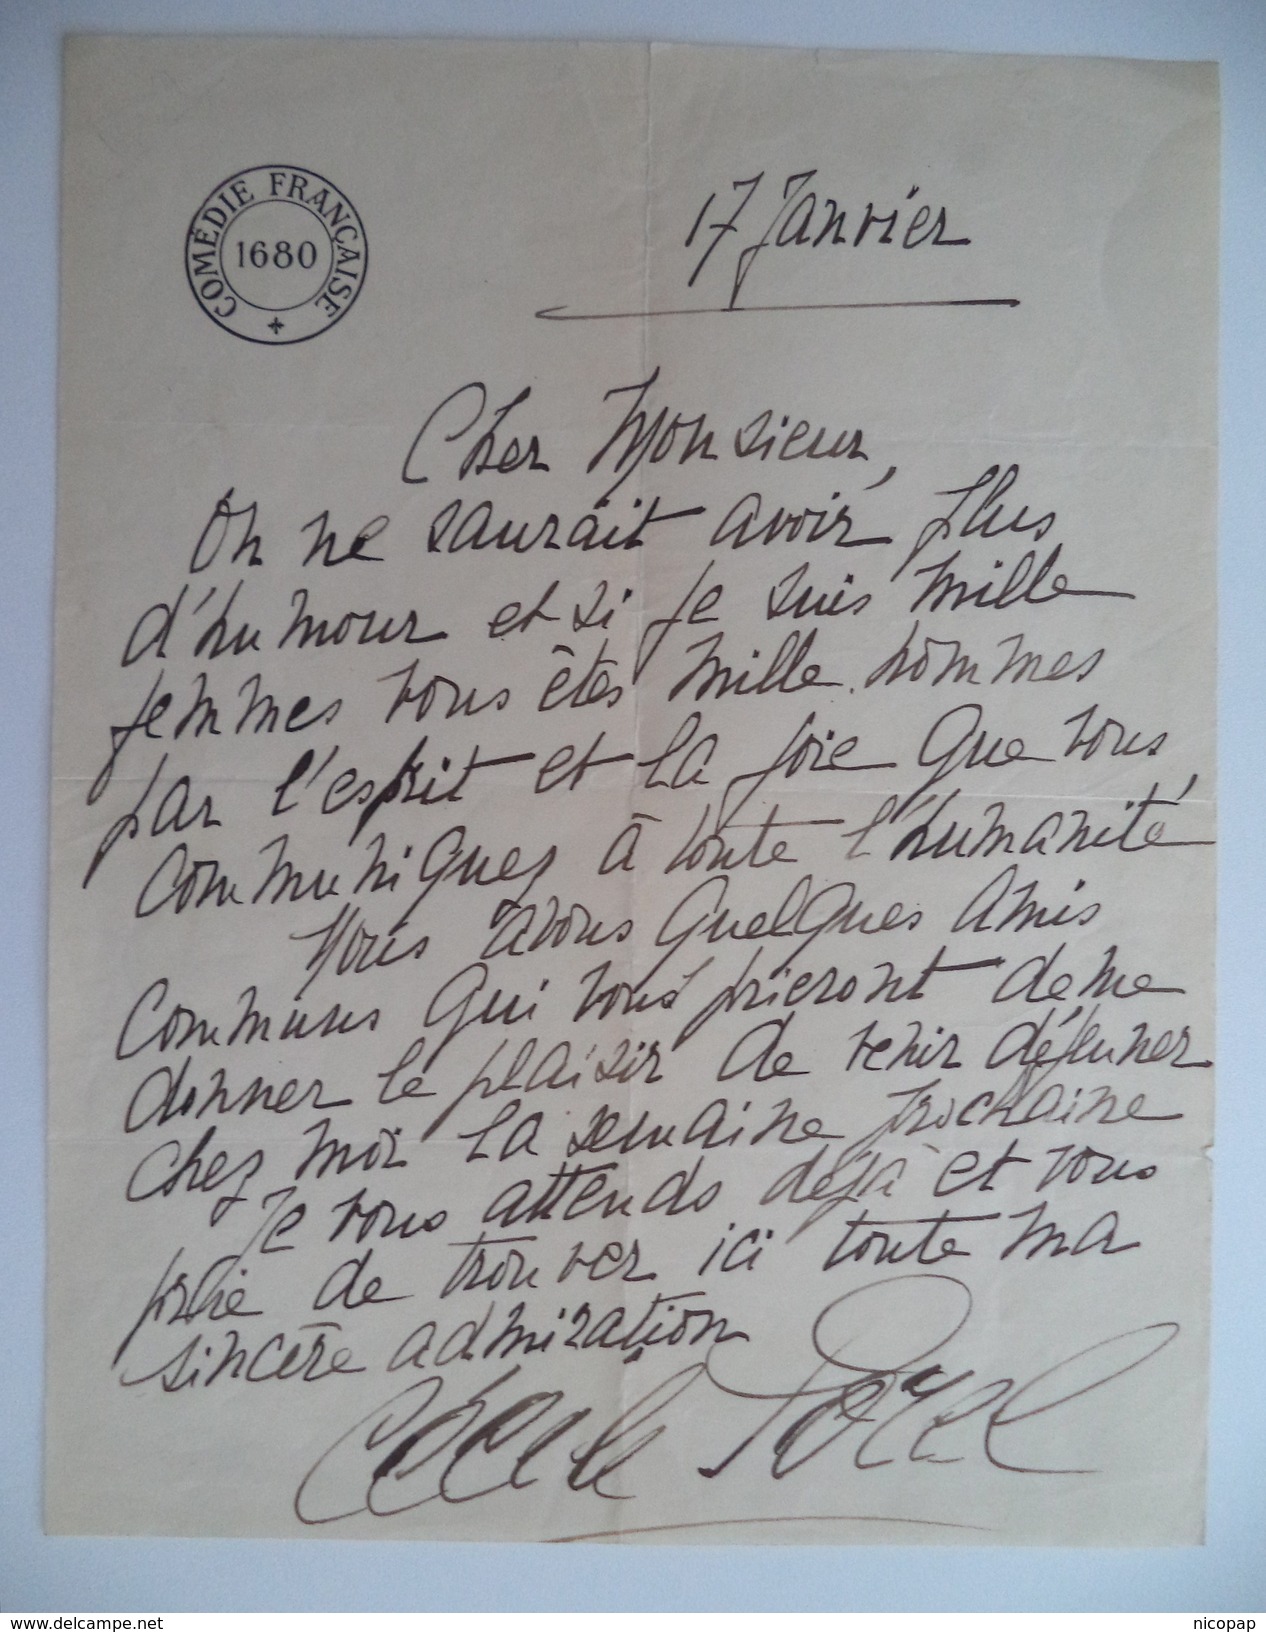 COMÉDIE FRANÇAISE
1680
17 Janvier
Cher Monsieur,
On ne saurait avoir plus
d'humour et si je suis mille
femmes vous êtes mille hommes
par l'esprit et la joie que vous
communiquez à toute l'humanité,
Nous avons quelques amis
communs qui vous prieront de me
donner le plaisir de venir déjeuner
chez moi la semaine prochaine
Je vous attends déjà et vous
prie de trouver ici toute ma
sincère admiration
Cécile Sorel
www.delcampe.net
nicopap